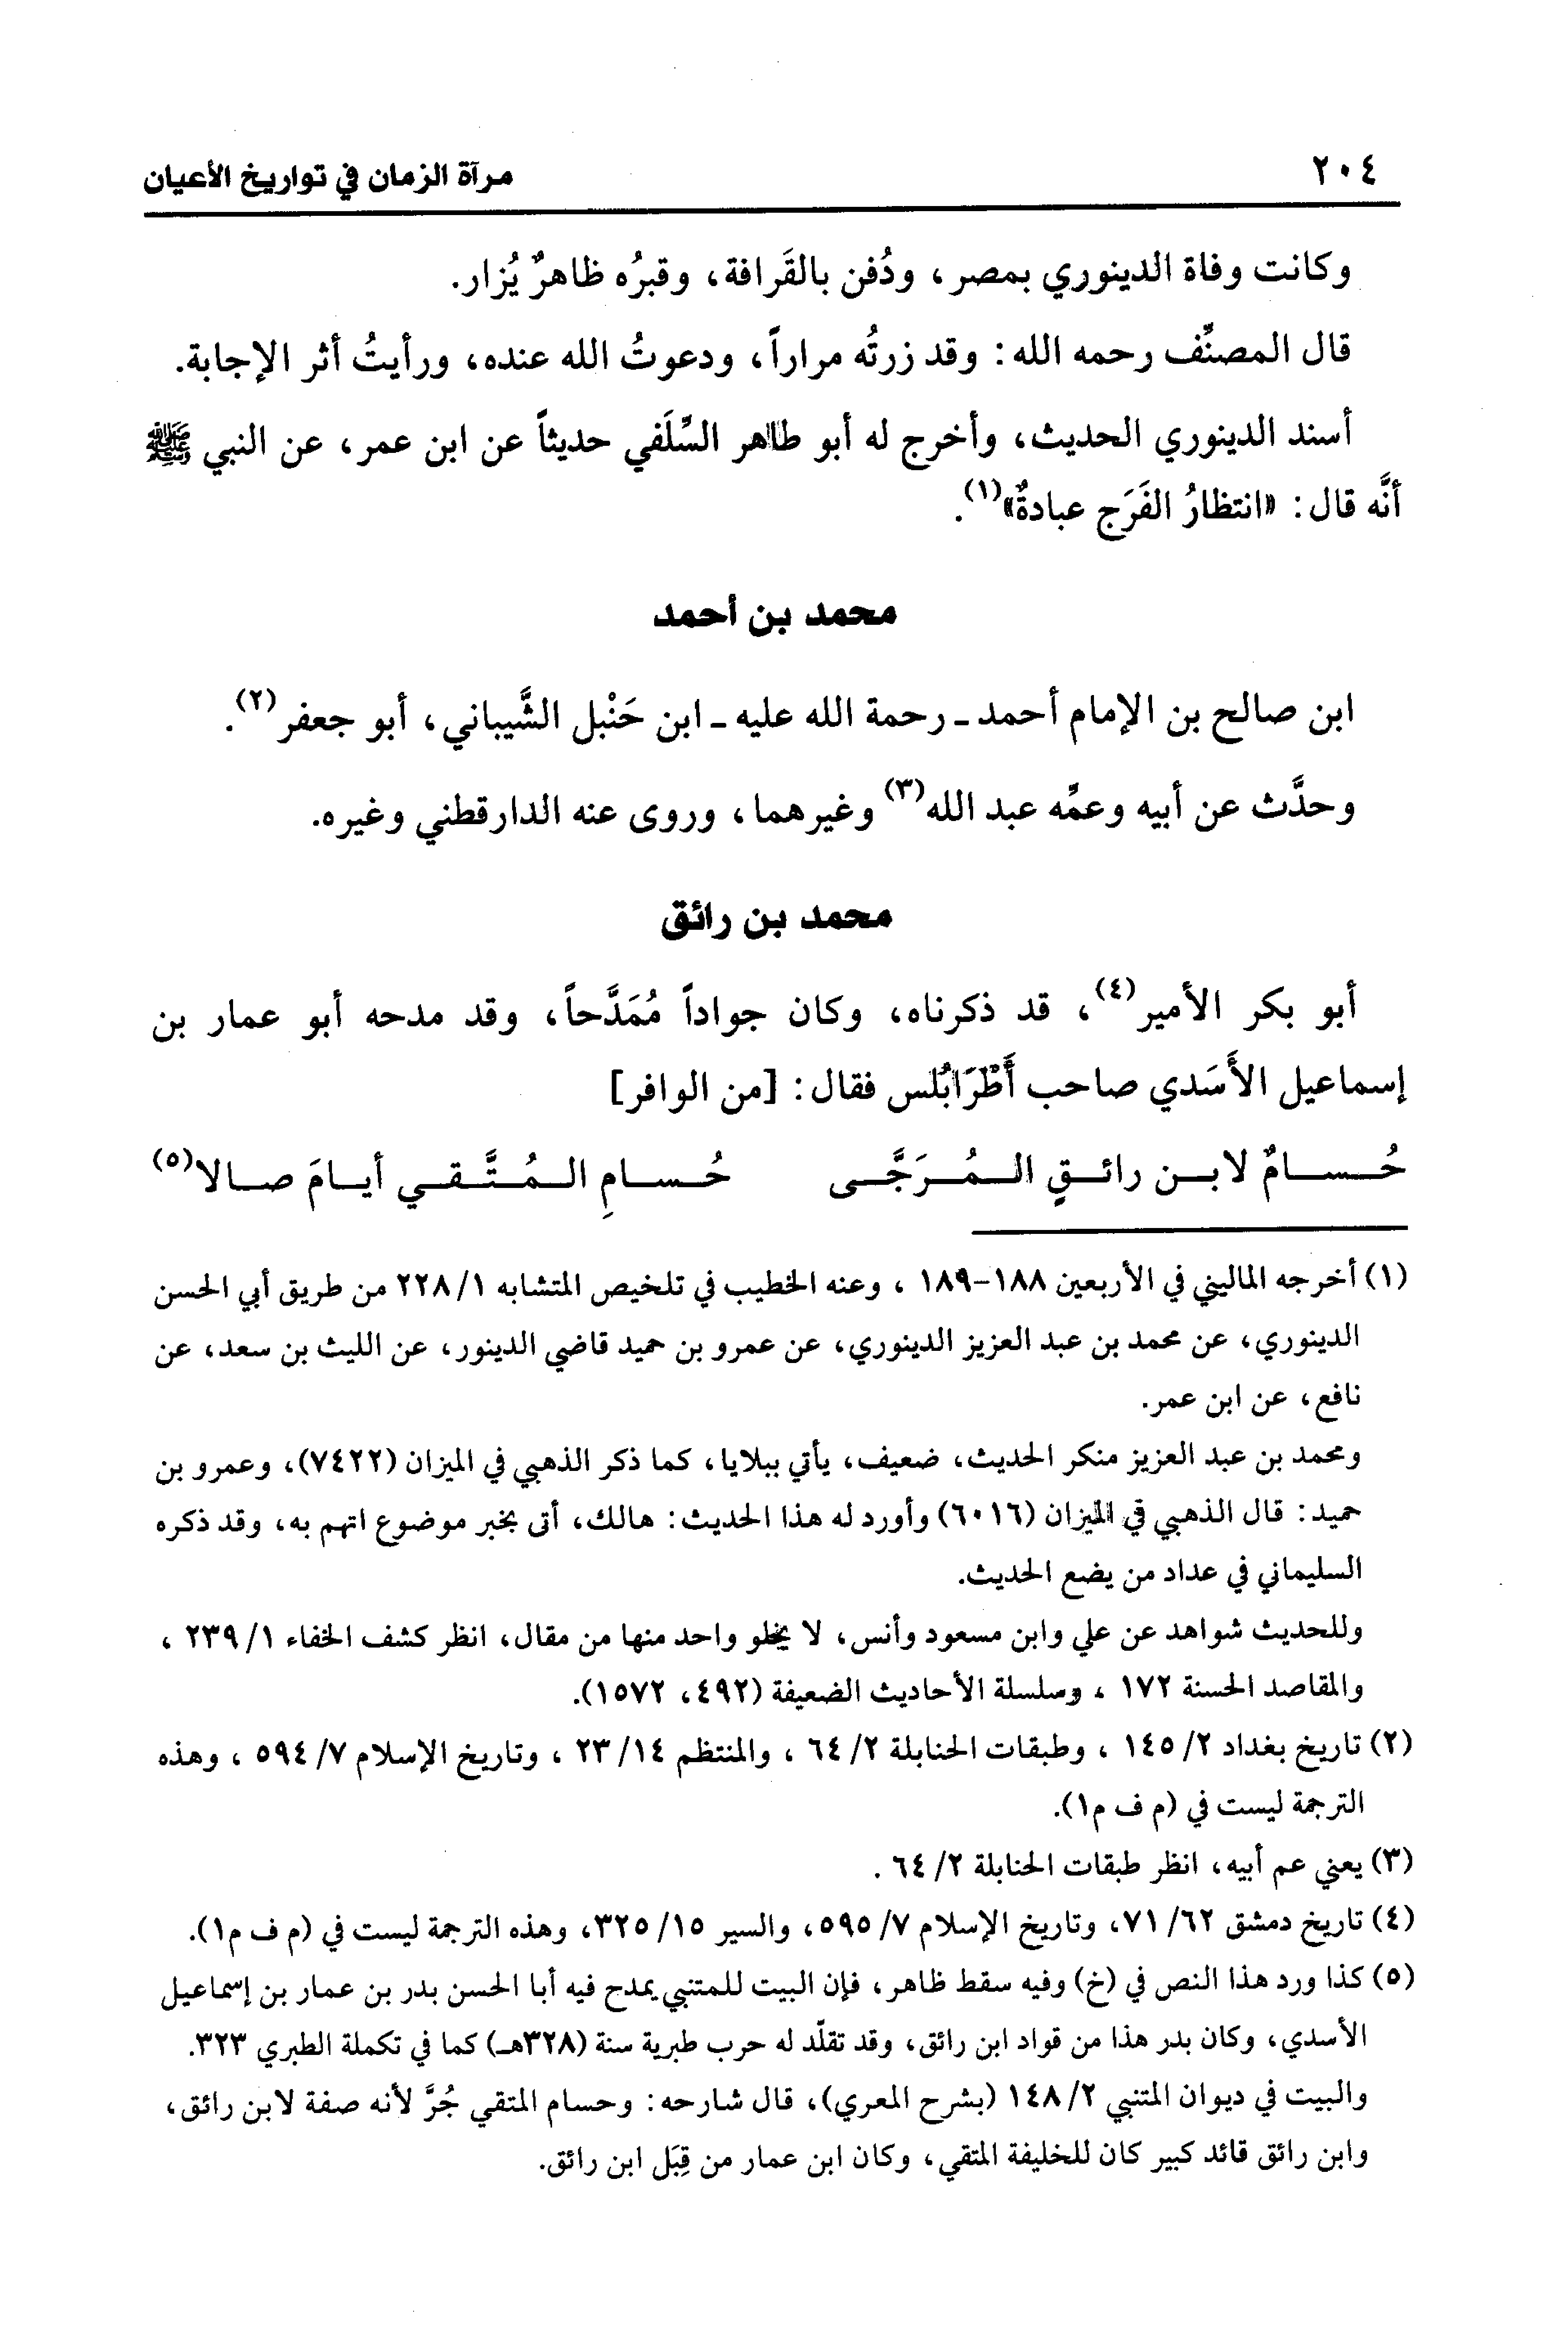 ٢٠٤ مرآة الزمان في تواريخ الأعيان
وكانت وفاة الدينوري بمصر، ودُفن بالقَرافة، وقبرُه ظاهرٌ يُزار.
قال المصنِّف رحمه الله: وقد زرتُه مراراً، ودعوتُ الله عنده، ورأيتُ أثر الإجابة.
أسند الدينوري الحديث، وأخرج له أبو طاهر السِّلَفي حديثاً عن ابن عمر، عن النبي ﷺ
أنَّه قال: «انتظارُ الفَرَج عبادةٌ»(١).
محمد بن أحمد
ابن صالح بن الإمام أحمد ـ رحمة الله عليه ـ ابن حَنْبل الشَّيباني، أبو جعفر(٢).
وحدَّث عن أبيه وعمِّه عبد الله(٣) وغيرهما، وروى عنه الدارقطني وغيره.
محمد بن رائق
أبو بكر الأمير(٤)، قد ذكرناه، وكان جواداً مُمَدَّحاً، وقد مدحه أبو عمار بن
إسماعيل الأَسَدي صاحب أَطْرَابُلس فقال: [من الوافر]
حُسامٌ لابن رائقٍ المُرَجَّى حُسامِ المُتَّقي أيامَ صالا(٥)
(١) أخرجه الماليني في الأربعين ١٨٨-١٨٩ ، وعنه الخطيب في تلخيص المتشابه ١/ ٢٢٨ من طريق أبي الحسن
الدينوري، عن محمد بن عبد العزيز الدينوري، عن عمرو بن حميد قاضي الدينور، عن الليث بن سعد، عن
نافع، عن ابن عمر.
ومحمد بن عبد العزيز منكر الحديث، ضعيف، يأتي ببلايا، كما ذكر الذهبي في الميزان (٧٤٢٢)، وعمرو بن
حميد: قال الذهبي في الميزان (٦٠١٦) وأورد له هذا الحديث: هالك، أتى بخبر موضوع اتهم به، وقد ذكره
السليماني في عداد من يضع الحديث.
وللحديث شواهد عن علي وابن مسعود وأنس، لا يخلو واحد منها من مقال، انظر كشف الخفاء ١/ ٢٣٩ ،
والمقاصد الحسنة ١٧٢ ، وسلسلة الأحاديث الضعيفة (٤٩٢، ١٥٧٢).
(٢) تاريخ بغداد ٢/ ١٤٥ ، وطبقات الحنابلة ٢/ ٦٤ ، والمنتظم ١٤/ ٢٣ ، وتاريخ الإسلام ٧/ ٥٩٤ ، وهذه
الترجمة ليست في (م ف م١).
(٣) يعني عم أبيه، انظر طبقات الحنابلة ٢/ ٦٤ .
(٤) تاريخ دمشق ٦٢/ ٧١، وتاريخ الإسلام ٧/ ٥٩٥، والسير ١٥/ ٣٢٥، وهذه الترجمة ليست في (م ف م١).
(٥) كذا ورد هذا النص في (خ) وفيه سقط ظاهر، فإن البيت للمتنبي يمدح فيه أبا الحسن بدر بن عمار بن إسماعيل
الأسدي، وكان بدر هذا من قواد ابن رائق، وقد تقلّد له حرب طبرية سنة (٣٢٨هـ) كما في تكملة الطبري ٣٢٣.
والبيت في ديوان المتنبي ٢/ ١٤٨ (بشرح المعري)، قال شارحه: وحسام المتقي جُرَّ لأنه صفة لابن رائق،
وابن رائق قائد كبير كان للخليفة المتقي، وكان ابن عمار من قِبَل ابن رائق.